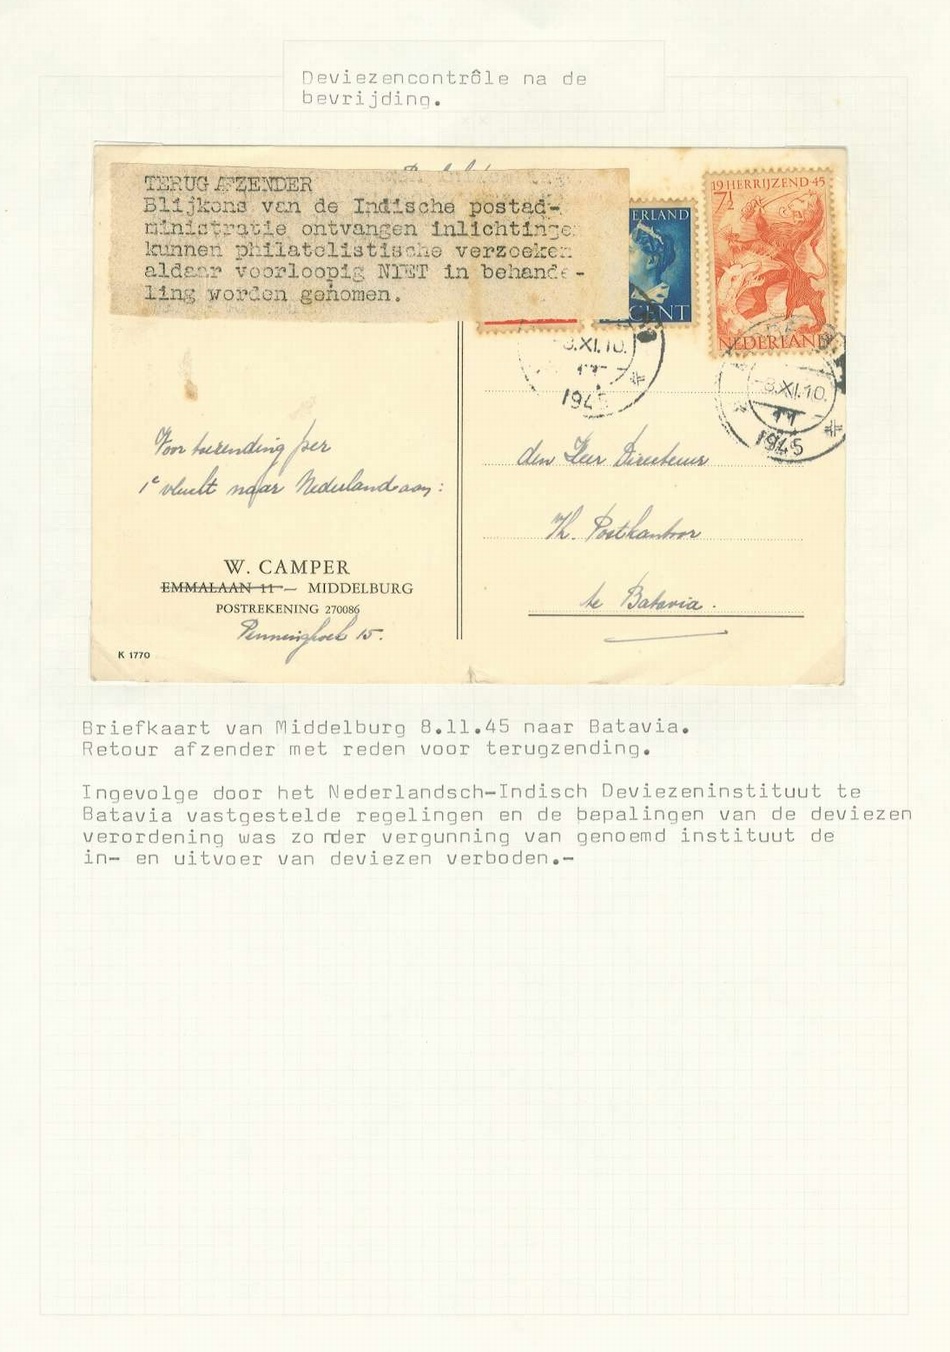 Deviezencontrôle na de
bevrijding.
TERUG AFZENDER
Blijkens van de Indische postad-
ministratie ontvangen inlichtinge
kunnen philatelistische verzoeken
aldaar voorloopig NIET in behande-
ling worden genomen.
ERLAND
CENT
19 HERRIJZEND 45
7½
NEDERLAND
8.XI.10.
1945
-8.XI.10.
1945
Voor toezending per
1e vlucht naar Nederland aan:
W. CAMPER
EMMALAAN 11 — MIDDELBURG
POSTREKENING 270086
Penninghoek 15.
K 1770
den Heer Directeur
Postkantoor
te Batavia.
Briefkaart van Middelburg 8.11.45 naar Batavia.
Retour afzender met reden voor terugzending.
Ingevolge door het Nederlandsch-Indisch Deviezeninstituut te
Batavia vastgestelde regelingen en de bepalingen van de deviezen
verordening was zonder vergunning van genoemd instituut de
in- en uitvoer van deviezen verboden.-